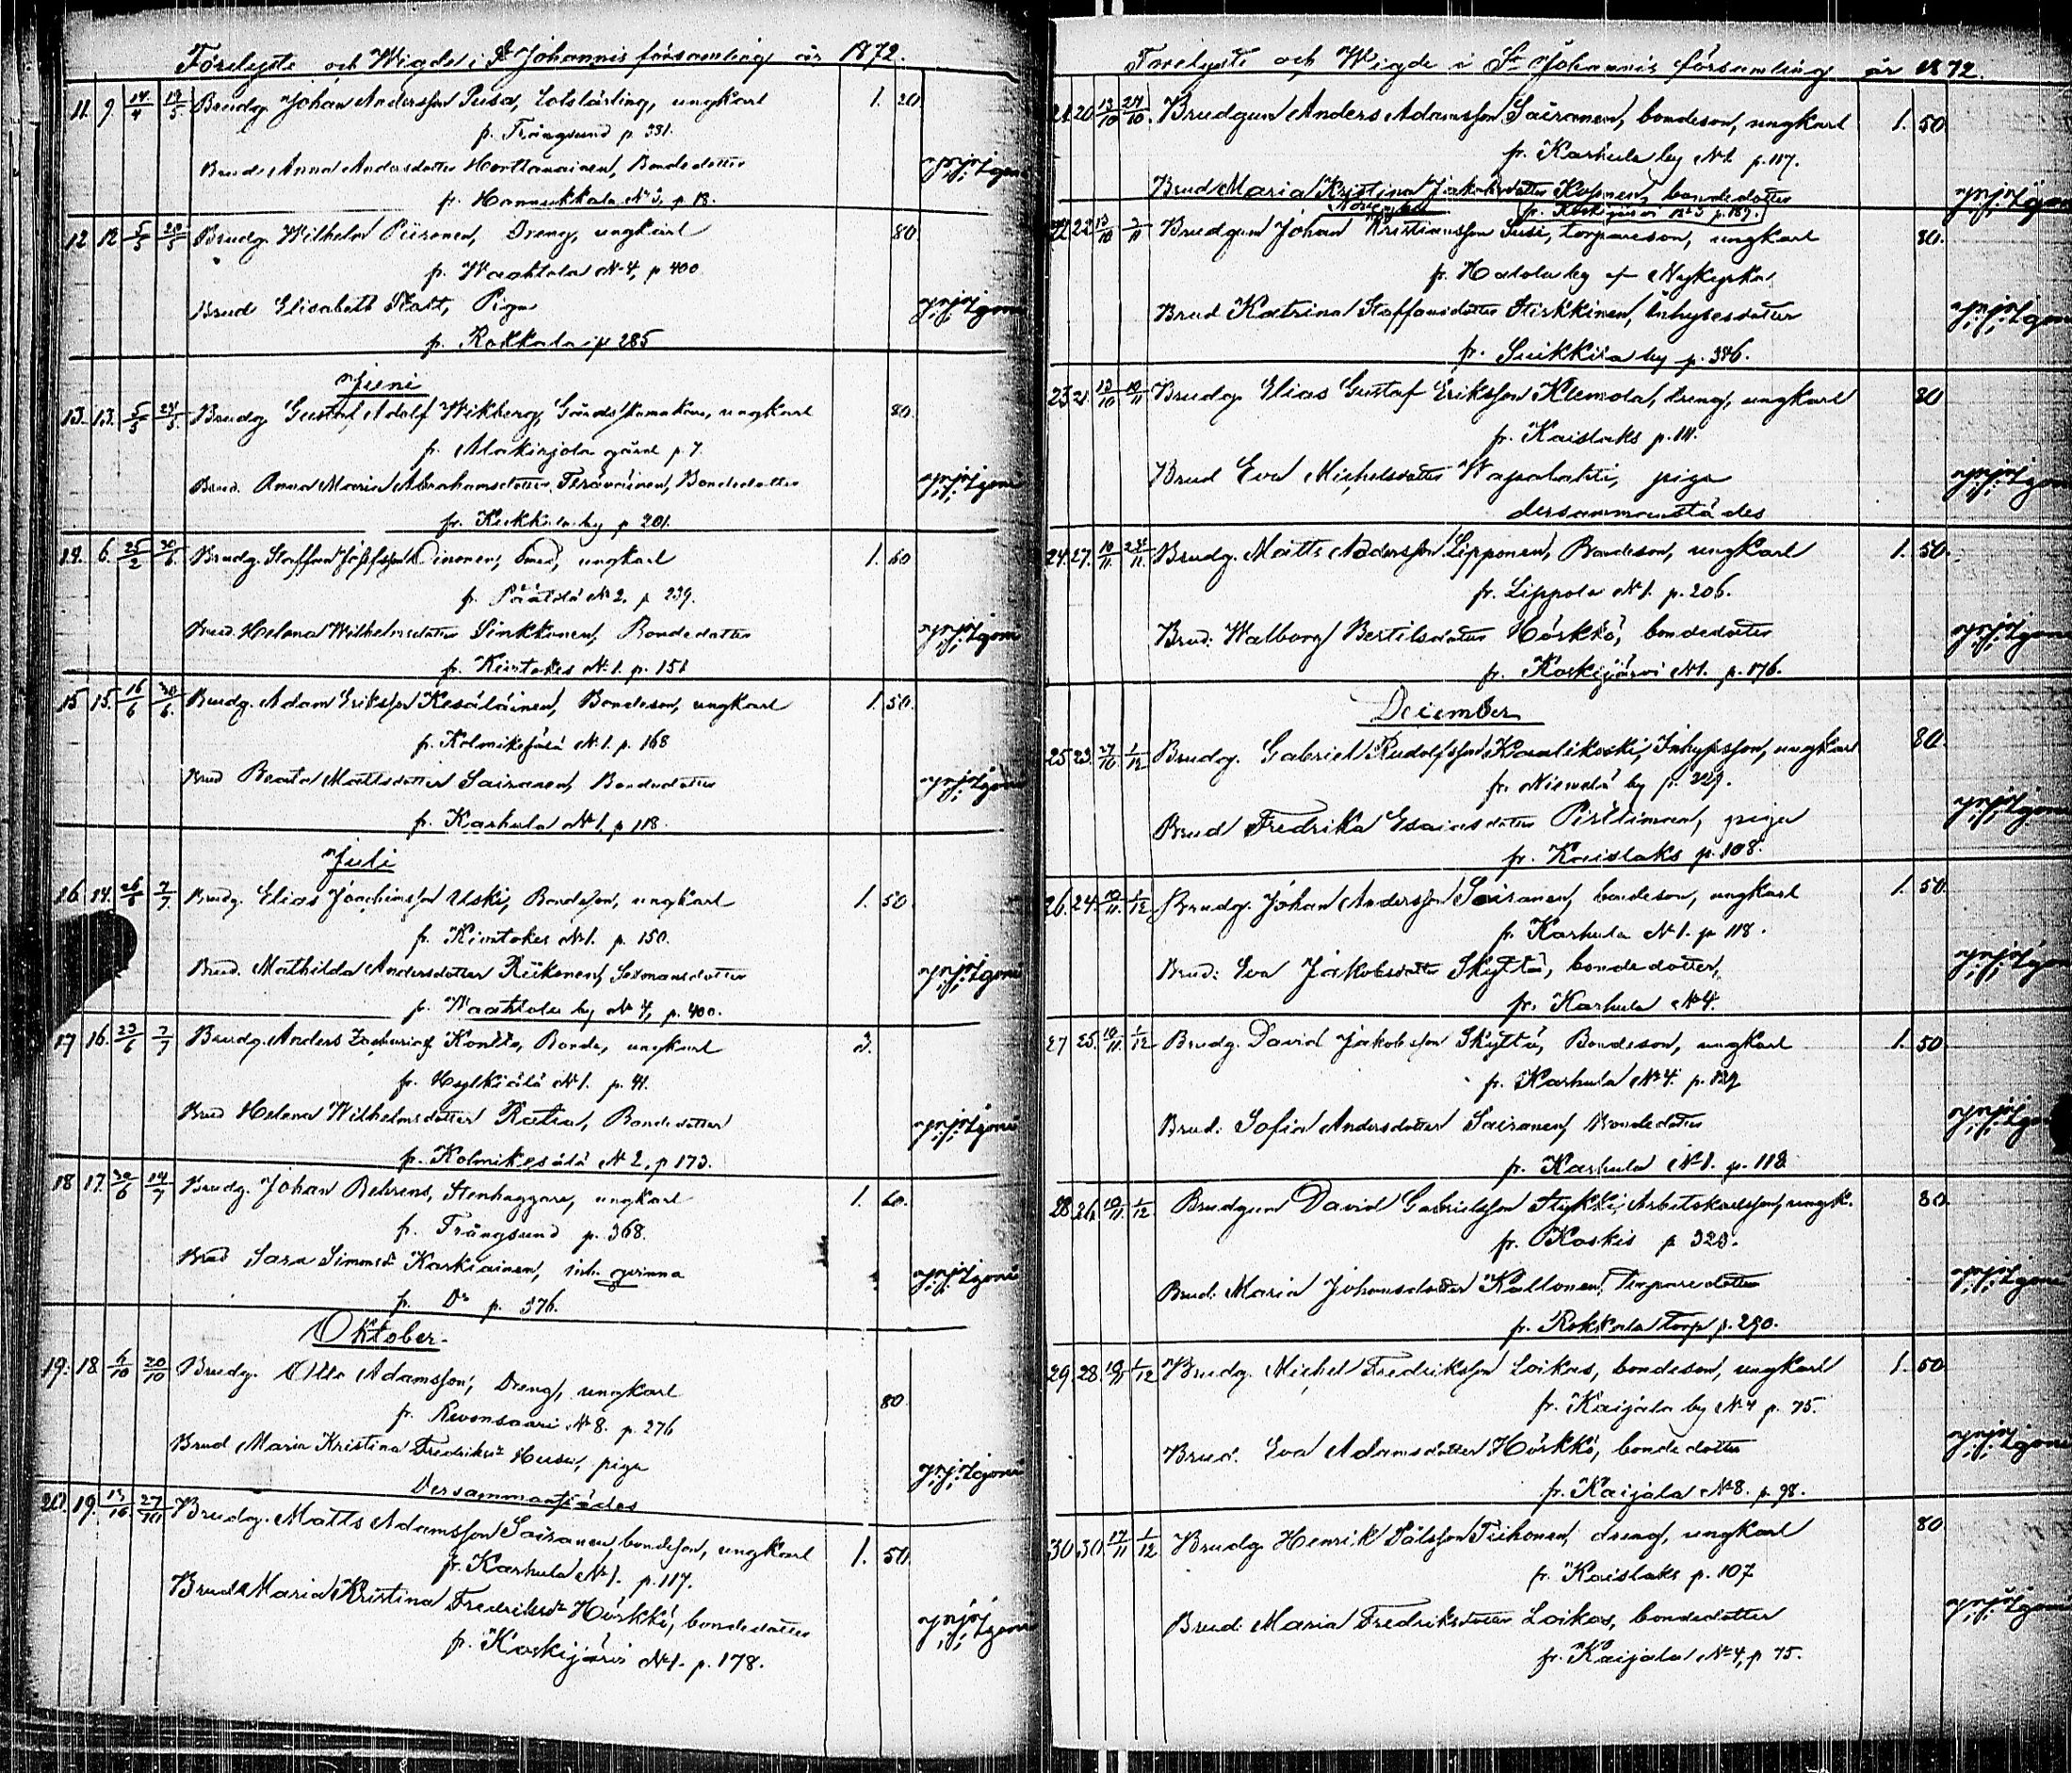 Förelyste och Wigde i St Johannis församling år 1872.
11. 9. 14/4 19/5 Brudg. Johan Andersson Pusa, Lotslärling, ungkarl 1. 20
fr. Trångsund p. 381.
Brud. Anna Andersdotter Horttanainen, Bondedotter
fr. Hannukkala № 2, p. 18.
12 12 5/5 20/5 Brudg. Wilhelm Piironen, Dreng, ungkarl 80
fr. Waahtola № 4, p 400
Brud Elisabeth Tatt, Piga
fr. Rokkala p 285
Juni
13. 13. 5/5 24/5 Brudg. Gustaf Adolf Wikberg, ungkarl 80.
fr. Alakirjola gård p. 7.
Brud. Anna Maria Abrahamsdotter Terävainen, Bondedotter
fr. Kukkola by p 201.
14. 6. 25/2 30/6 Brudg. Staffan ungkarl 1. 60
fr. Päätilä № 2. p 239.
Brud. Helena Wilhelmsdotter Sinkkonen, Bondedotter
fr. Kirstakes № 1. p. 151
15 15. 16/6 30/6. Brudg. Adam Eriksson Kesäläinen, Bondeson, ungkarl 1. 50.
fr. Kolmikesälä № 1. p. 168
Brud Beata Mattsdotter Sairanen, Bondedotter
fr. Karhula № 1, p 118.
Juli
16 14. 26/5 7/7. Brudg. Elias Joachimsson Uski, Bondeson, ungkarl 1. 50
fr. Kirstakes № 1. p. 150.
Brud. Mathilda Andersdotter Riikonen, Sexmansdotter
fr. Waahtola by № 4, p. 400.
17 16. 23/6 7/7 Brudg. Anders Zachariass Kontto, Bonde, ungkarl 2.
fr. Hylkiälä № 1. p. 41.
Brud Helena Wilhelmsdotter Ratia, Bondedotter
fr. Kolmikesälä № 2, p 173.
18 17. 30/6 14/7 Brudg. Johan Behrens, Stenhuggare, ungkarl 1. 60.
fr. Trångsund p. 368.
Brud Sara Simonsdr Karkiainen, inh. qvinna
fr. Do p. 376.
Oktober.
19. 18 6/10 20/10 Brudg. Otto Adamsson, Dreng, ungkarl 80
fr. Revonsaari № 8. p. 276
Brud Maria Kristina Fredriksdr Husu, piga
Dersammanstädes
20. 19. 13/10 27/10 Brudg. Matts Adamsson Sairanen, bondeson, ungkarl 1. 50
fr. Karhula № 1. p. 117.
Brud. Maria Kristina Fredriksdr Hörkkö, bondedotter
fr. Koskijärvi № 1. p. 178.
Förelyste och Wigde i St Johannis församling år 1872.
21. 20. 13/10 27/10. Brudgum Anders Adamsson Sairanen, bondeson, ungkarl 1. 50
fr. Karhula by № 1 p. 117.
Brud Maria Kristina Jakobsdotter Kopanen, bondedotter
fr. Koskijärvi № 3 p. 189.
November
22 22 13/10 3/11 Brudgum Johan Kristiansson Susi, torpareson, ungkarl 80.
fr. Hatola by af Nykyrka
Brud Katrina Staffansdotter Kirkkinen, Inhysesdotter
fr. Suikkila by p. 346.
23 21. 13/10 10/11 Brudg. Elias Gustaf Eriksson Klemola, dreng, ungkarl 80
fr. Kaislaks p. 111.
Brud Eva Michelsdotter Wapalahti, piga
dersammanstädes
24. 27. 10/11. 24/11. Brudg. Matts Andersson Lipponen, Bondeson, ungkarl 1. 50.
fr. Lippola № 1. p. 206.
Brud: Walborg Bertilsdotter Hörkkö, bondedotter
fr. Koskijärvi № 1. p. 176.
December
25 23. 27/10 1/12 Brudg. Gabriel Rudolfsson Kaalikoski, Inhysson, ungkarl 80.
fr. Niemelä by p. 329.
Brud Fredrika Esaiasdotter Pirttinen, piga
fr. Kaislaks p. 108.
26. 24. 10/11. 1/12 Brudg. Johan Andersson Sairanen, bondeson, ungkarl 1. 50.
fr. Karhula № 1. p 118.
Brud: Eva Jakobsdotter Skyttä, bondedotter,
fr. Karhula № 4.
27 25. 10/11. 1/12 Brudg. David Jakobsson Skyttä, Bondeson, ungkarl 1. 50
fr. Karhula № 4. p. 129
Brud: Sofia Andersdotter Sairanen, Bondedotter
fr. Karhula № 1. p. 118
28 26. 10/11. 1/12 Brudgum David Gabrielsson Tykki, Arbetskarlsson, ungk. 80.
fr. Koskis p 323.
Brud: Maria Johansdotter Kallonen, Torparedotter
fr. Rokkala torp p. 290.
29. 28. 10/11 1/12 Brudg. Michel Fredriksson Loikas, bondeson, ungkarl 1. 50
fr. Kaijala by № 4 p. 75.
Brud. Eva Adamsdotter Hörkkö, bondedotter
fr. Kaijala № 8. p. 98.
30 30. 17/11 1/12 Brudg. Henrik Pålsson Tiihonen, dreng, ungkarl 80
fr. Kaislaks p. 107
Brud. Maria Fredriksdotter Loikas, bondedotter
fr. Kaijala № 4, p 75.